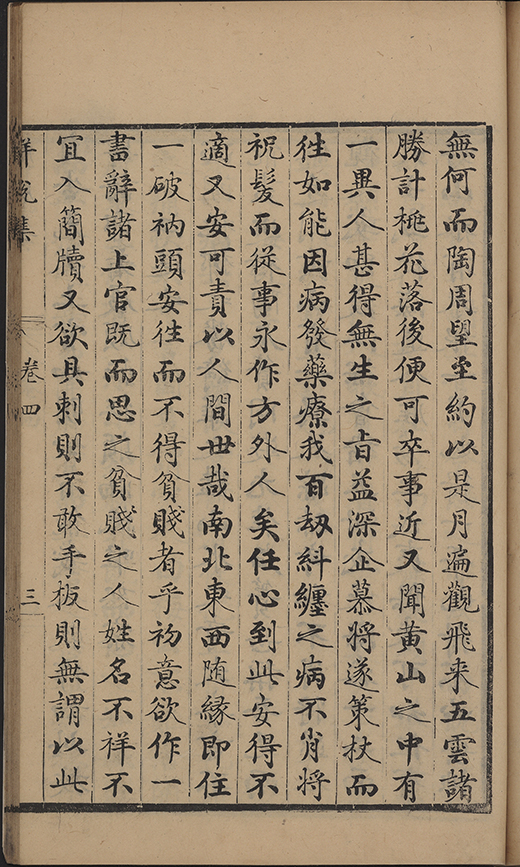 無何而陶周望至約以是月遍觀飛来五雲諸
勝計桃花落後便可卒事近又聞黄山之中有
一異人甚得無生之旨益深企慕將遂策杖而
徃如能因病發藥療我百刼糾纏之病不肖將
祝髮而從事永作方外人矣任心到此安得不
適又安可責以人間世哉南北東西随緣即住
一破衲頭安徃而不得貧賤者乎初意欲作一
書辭諸上官既而思之貧賤之人姓名不祥不
宜入簡牘又欲具刺則不敢手板則無謂以此
解脫集
卷四
三